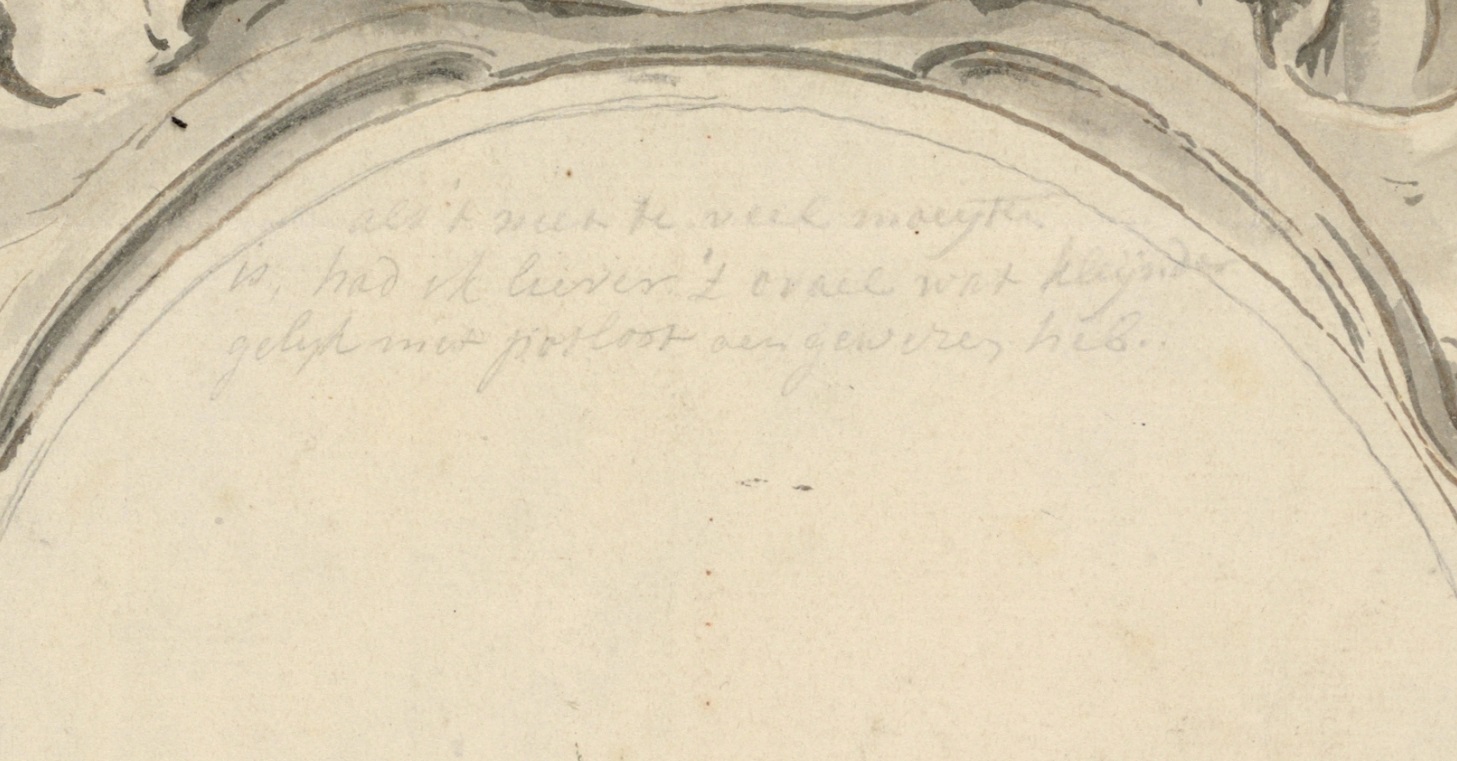 als 't niet te veel moeyte
is, had ik liever 't ovael wat kleijnder
gelyk met potloot aengewezen heb..